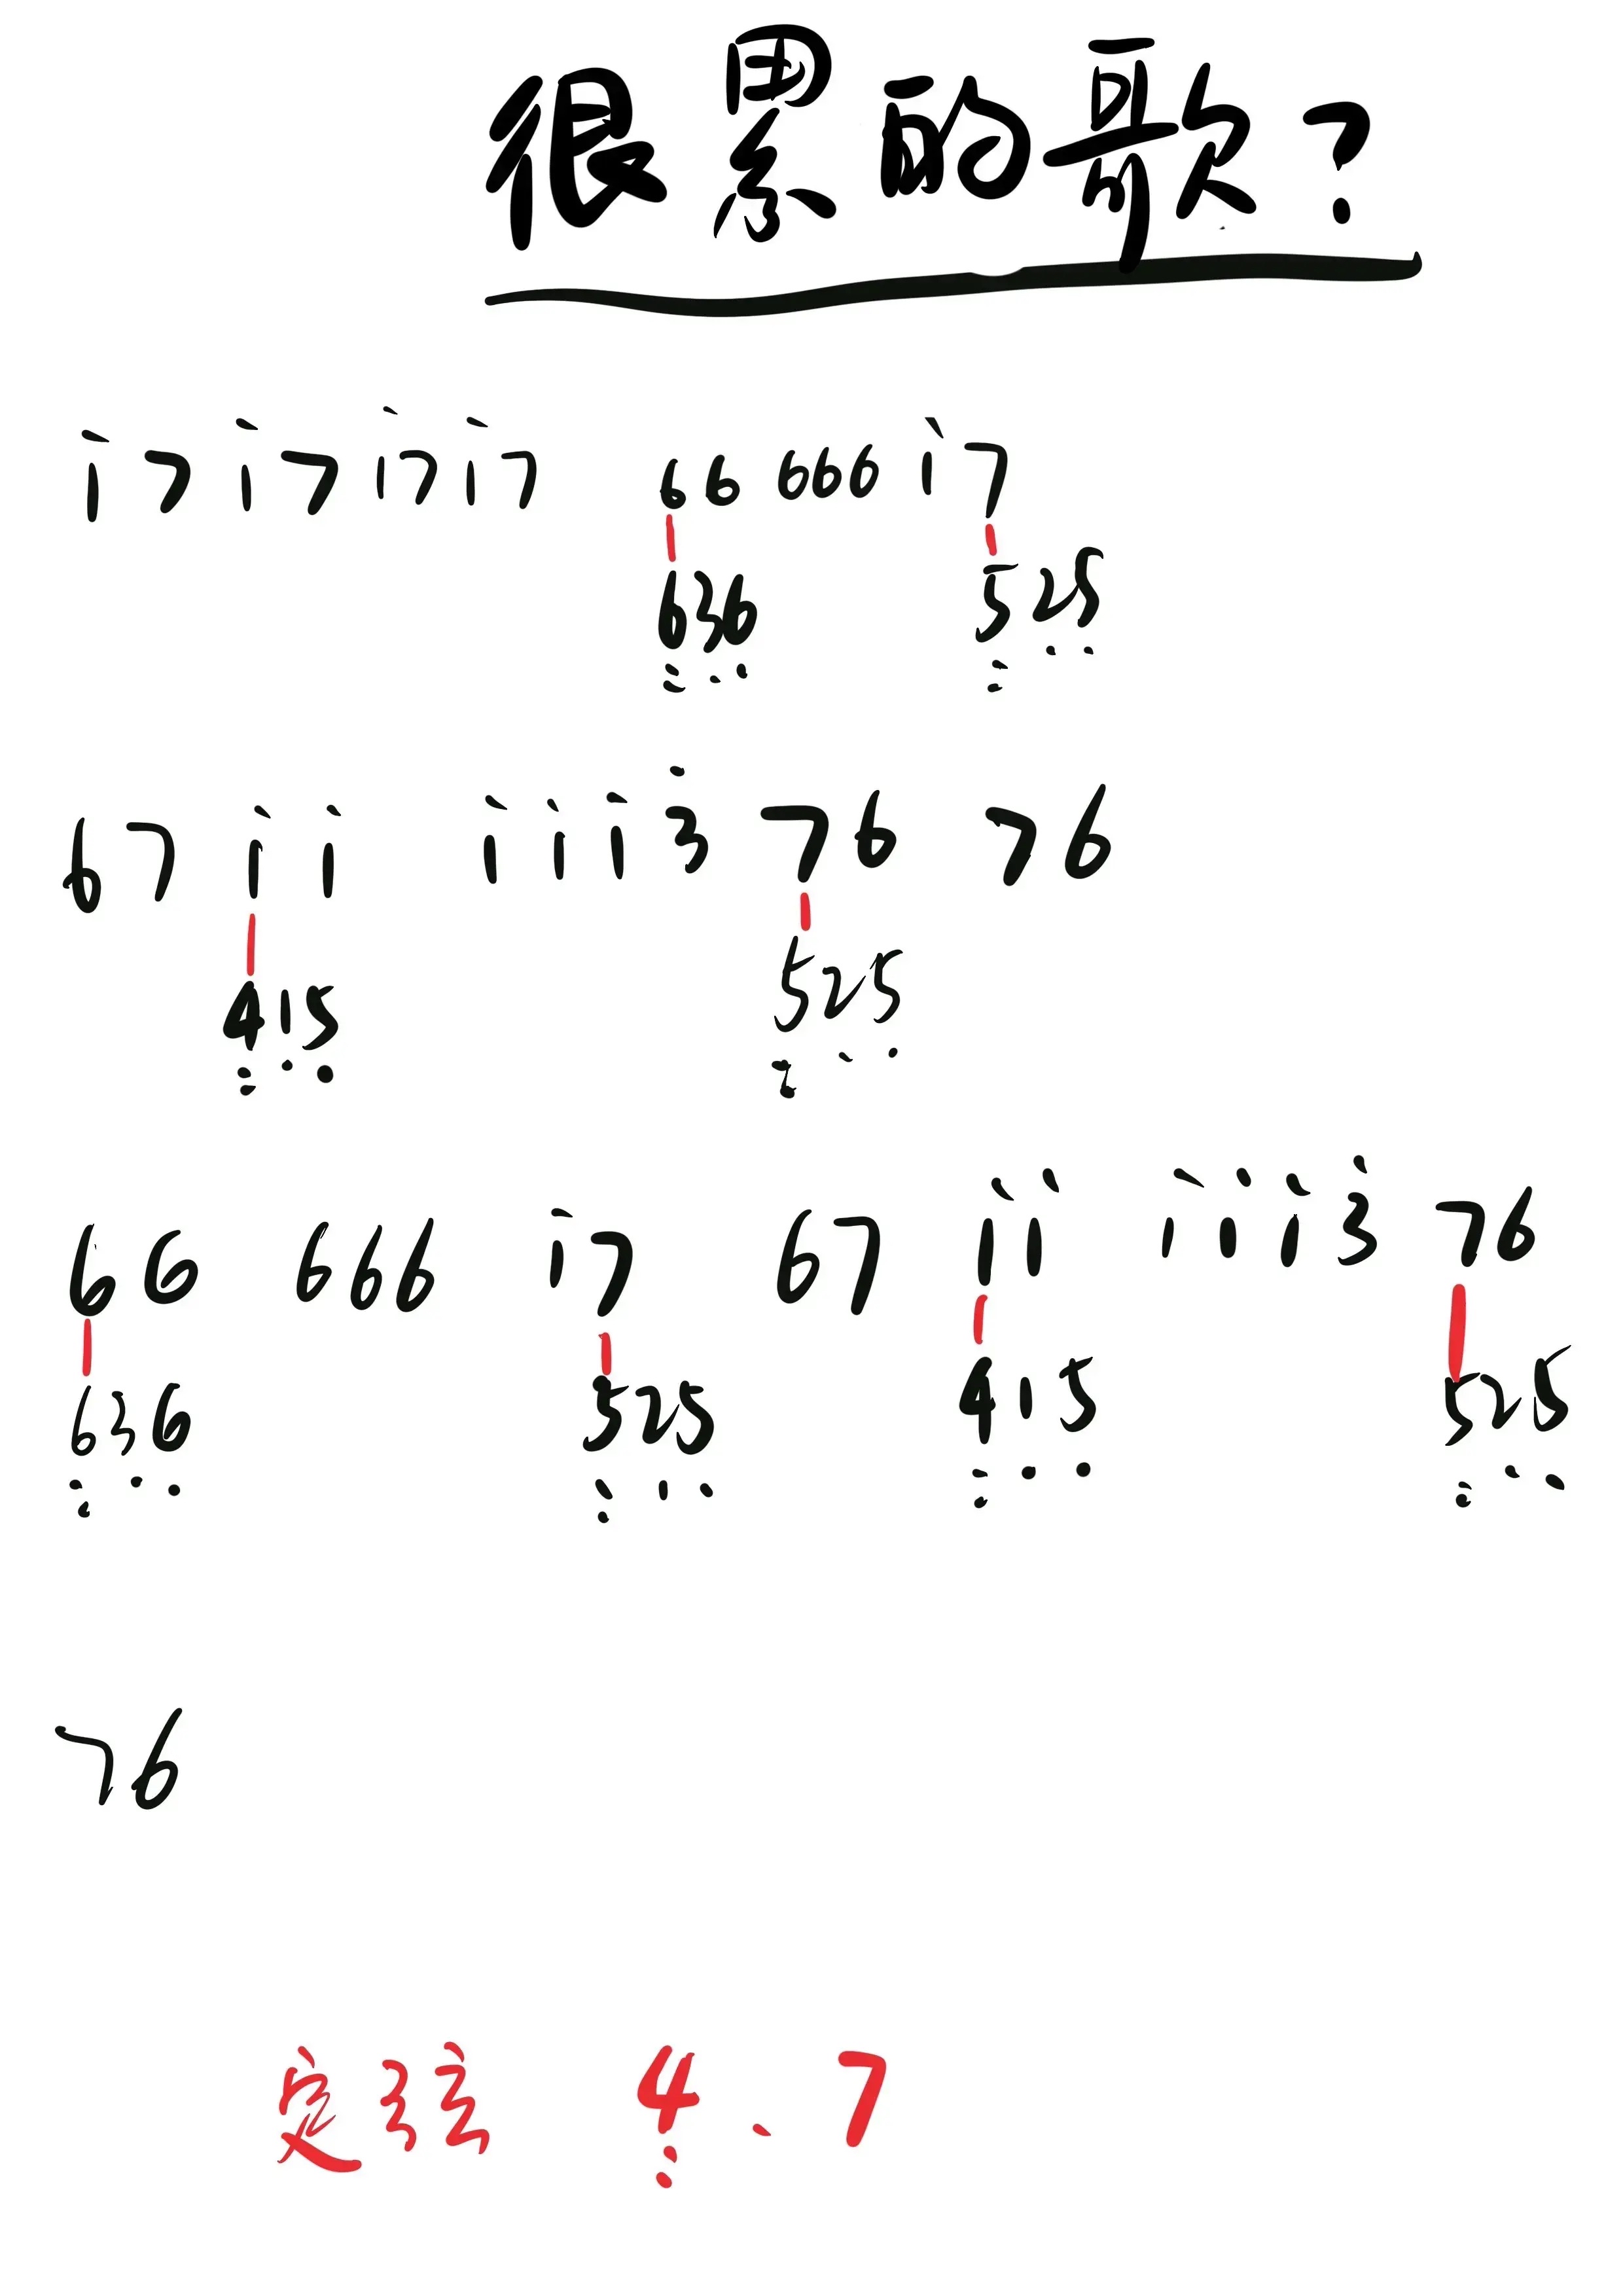 很累的歌？
i 7 i 7 i 7 i 7 6 6 6 6 6 i 7
6 3 6 5 2 5
6 7 i i i i i 3̇ 7 6 7 6
4 1 5 5 2 5
6 6 6 6 6 i 7 6 7 i i i i i 3̇ 7 6
6 3 6 5 2 5 4 1 5 5 2 5
7 6
定弦 4̣̣ . 7